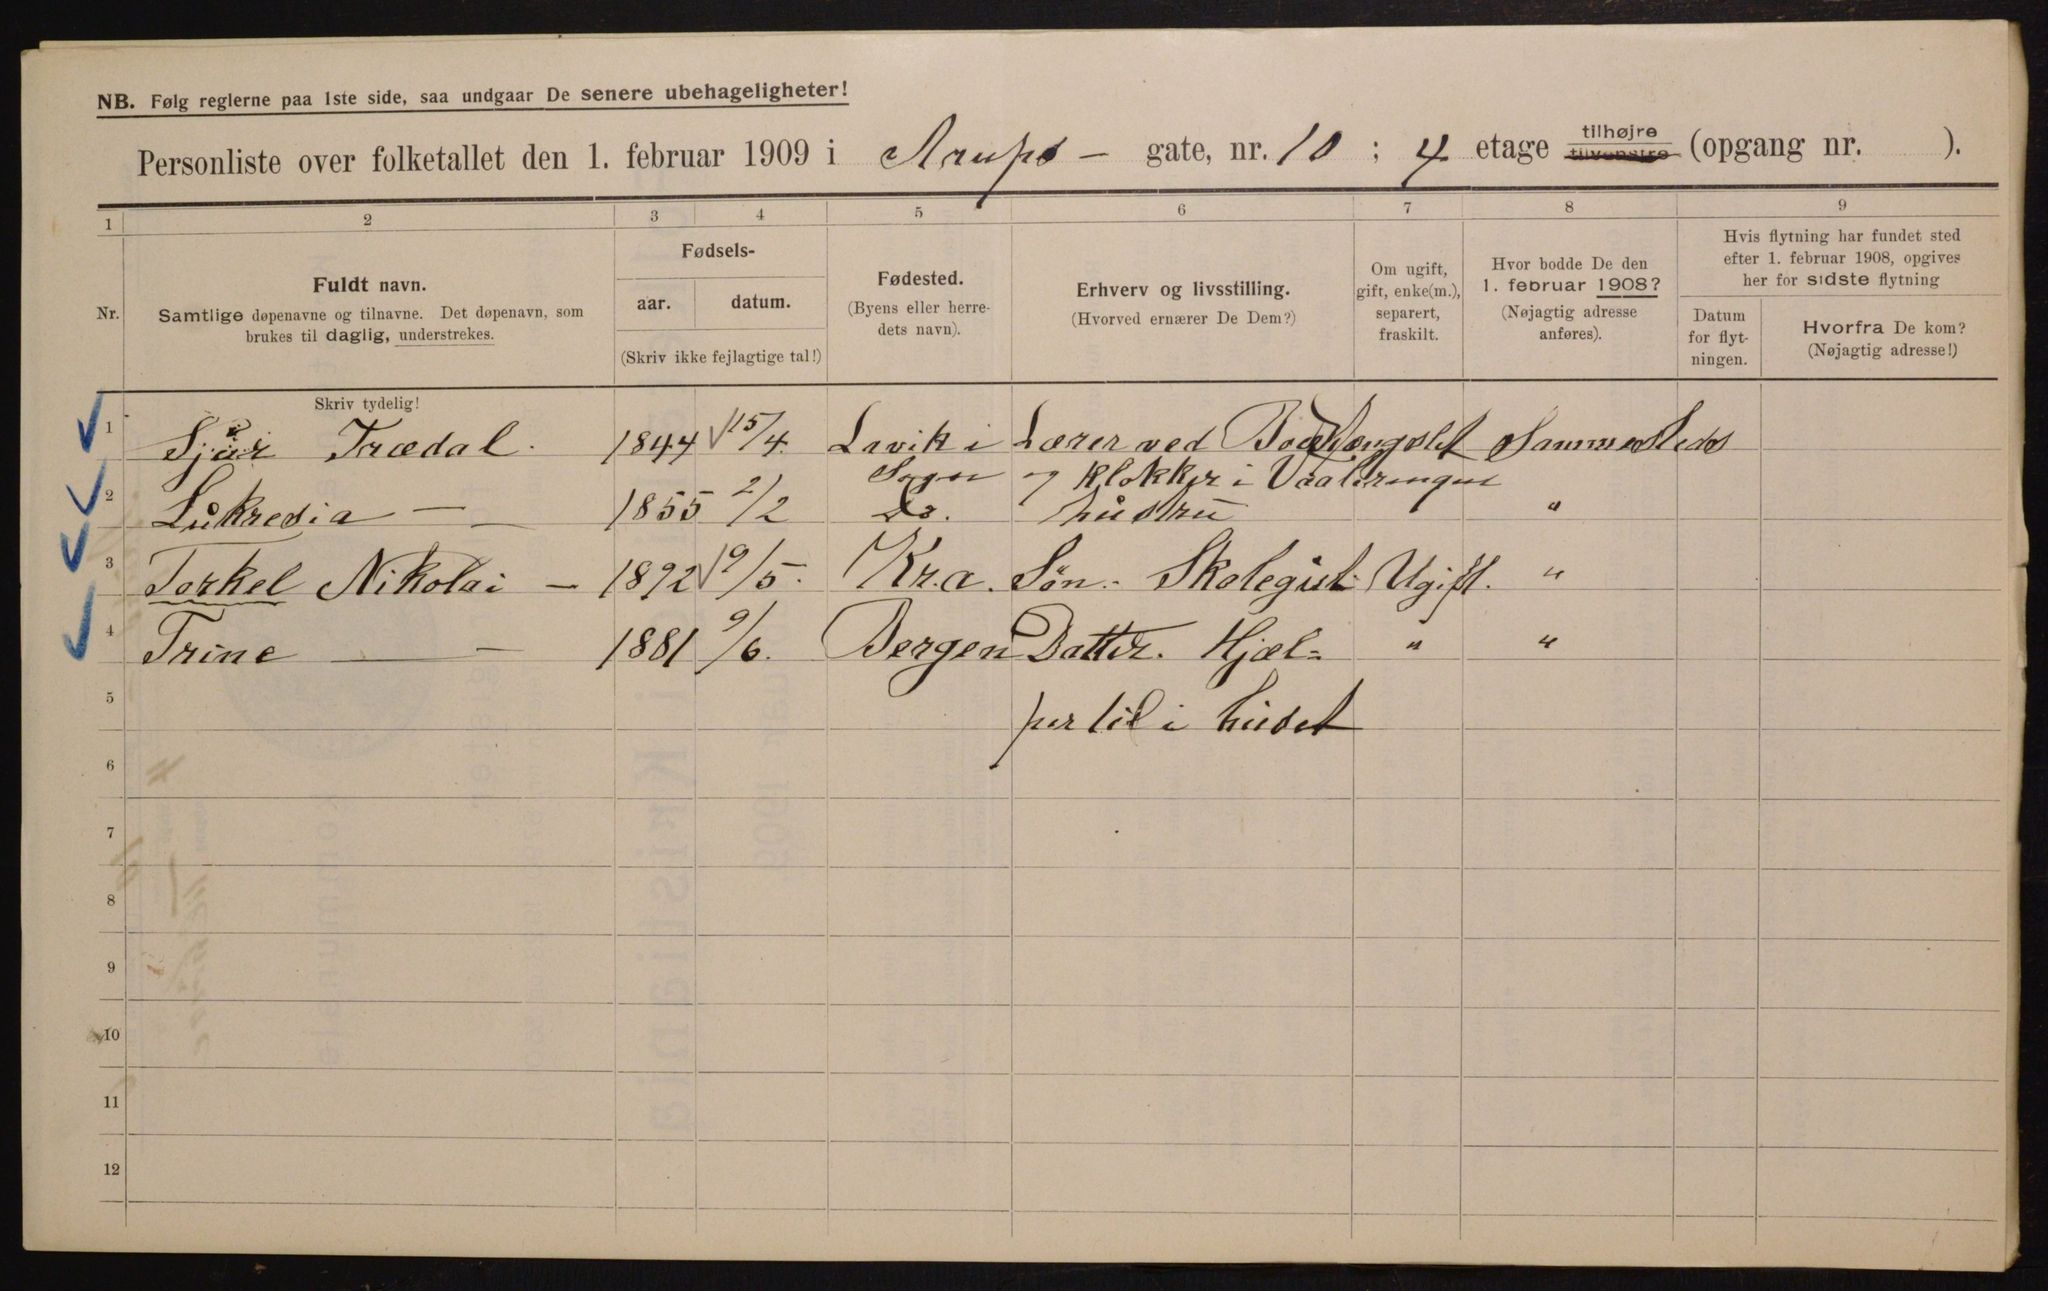 NB. Følg reglerne paa 1ste side, saa undgaar De senere ubehageligheter!
Personliste over folketallet den 1. februar 1909 i Arups - gate, nr. 10 ; 4 etage tilhøjre tilvenstre (opgang nr. ).
1 2 3 4 5 6 7 8 9
Nr.
Fuldt navn.
Samtlige døpenavne og tilnavne. Det døpenavn, som
brukes til daglig, understrekes.
Skriv tydelig!
Fødsels-
aar. datum.
(Skriv ikke fejlagtige tal!)
Fødested.
(Byens eller herre-
dets navn).
Erhverv og livsstilling.
(Hvorved ernærer De Dem?)
Om ugift,
gift, enke(m.),
separert,
fraskilt.
Hvor bodde De den
1. februar 1908?
(Nøjagtig adresse
anføres).
Hvis flytning har fundet sted
efter 1. februar 1908, opgives
her for sidste flytning
Datum
for flyt-
ningen.
Hvorfra De kom?
(Nøjagtig adresse!)
1 Sjur Trædal. 1844 15/4. Lavik i Lærer ved Bodsfængslet Sammesteds
Sogn og Klokker i Vaalerengen
2 Lukresia — 1855 2/2 Do. hustru "
3 Torkel Nikolai — 1892 9/5. Kr.a. Søn. - Skolegut Ugift. "
4 Trine — 1881 9/6. Bergen Datter. Hjæl-
" "
5 per til i huset
6
7
8
9
10
11
12